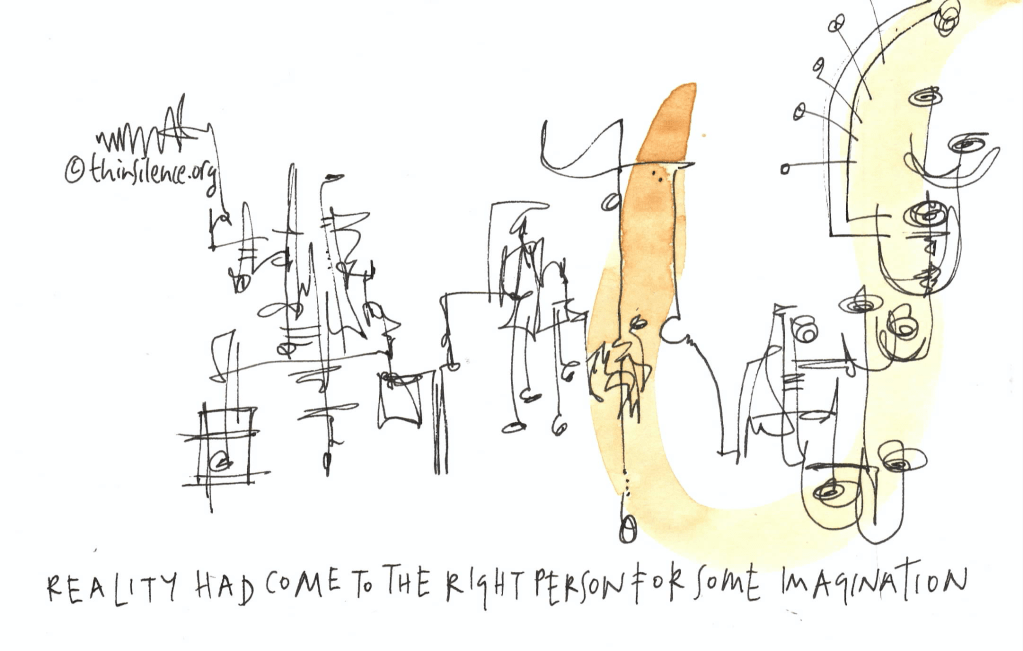 © thinsilence.org
REALITY HAD COME TO THE RIGHT PERSON FOR SOME IMAGINATION